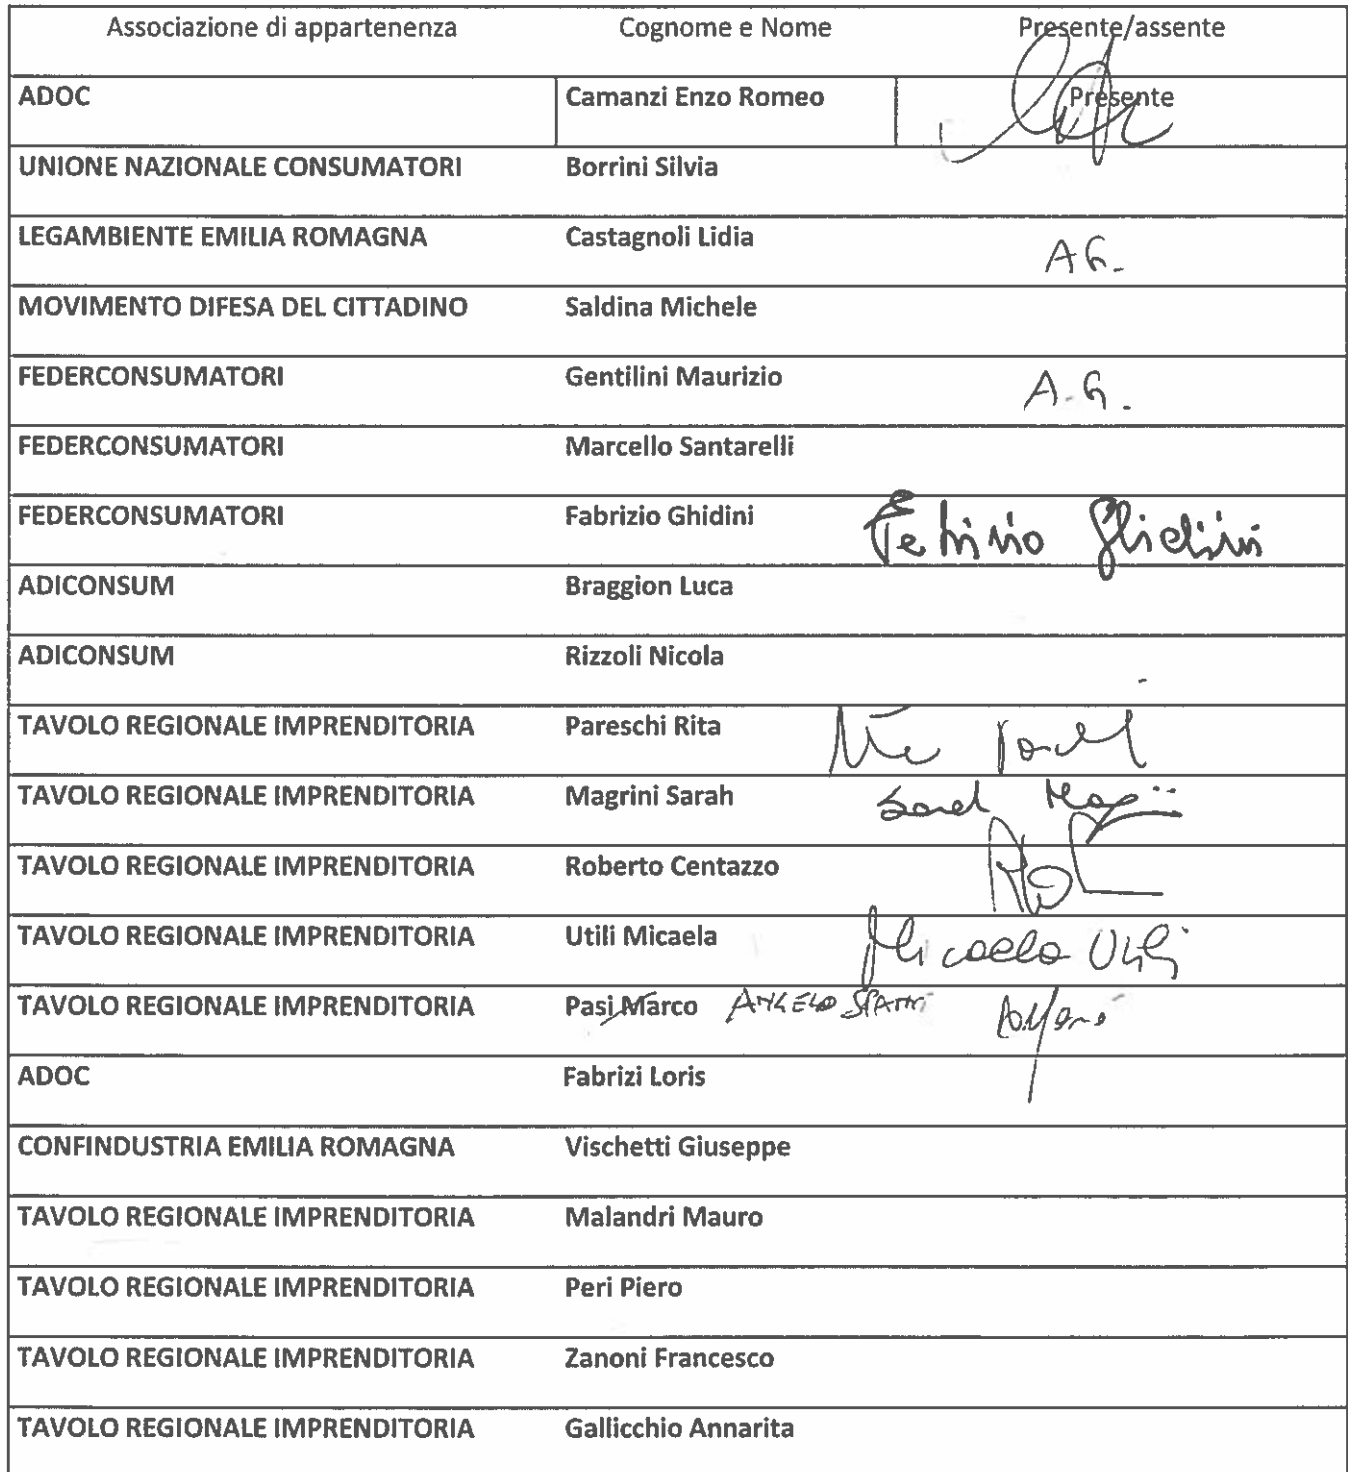 Associazione di appartenenza Cognome e Nome Presente/assente
ADOC Camanzi Enzo Romeo Presente
UNIONE NAZIONALE CONSUMATORI Borrini Silvia
LEGAMBIENTE EMILIA ROMAGNA Castagnoli Lidia A G.
MOVIMENTO DIFESA DEL CITTADINO Saldina Michele
FEDERCONSUMATORI Gentilini Maurizio A.G.
FEDERCONSUMATORI Marcello Santarelli
FEDERCONSUMATORI Fabrizio Ghidini Fabrizio Ghidini
ADICONSUM Braggion Luca
ADICONSUM Rizzoli Nicola
TAVOLO REGIONALE IMPRENDITORIA Pareschi Rita
TAVOLO REGIONALE IMPRENDITORIA Magrini Sarah
TAVOLO REGIONALE IMPRENDITORIA Roberto Centazzo
TAVOLO REGIONALE IMPRENDITORIA Utili Micaela Micaela Utili
TAVOLO REGIONALE IMPRENDITORIA Pasi Marco ANGELO
ADOC Fabrizi Loris
CONFINDUSTRIA EMILIA ROMAGNA Vischetti Giuseppe
TAVOLO REGIONALE IMPRENDITORIA Malandri Mauro
TAVOLO REGIONALE IMPRENDITORIA Peri Piero
TAVOLO REGIONALE IMPRENDITORIA Zanoni Francesco
TAVOLO REGIONALE IMPRENDITORIA Gallicchio Annarita